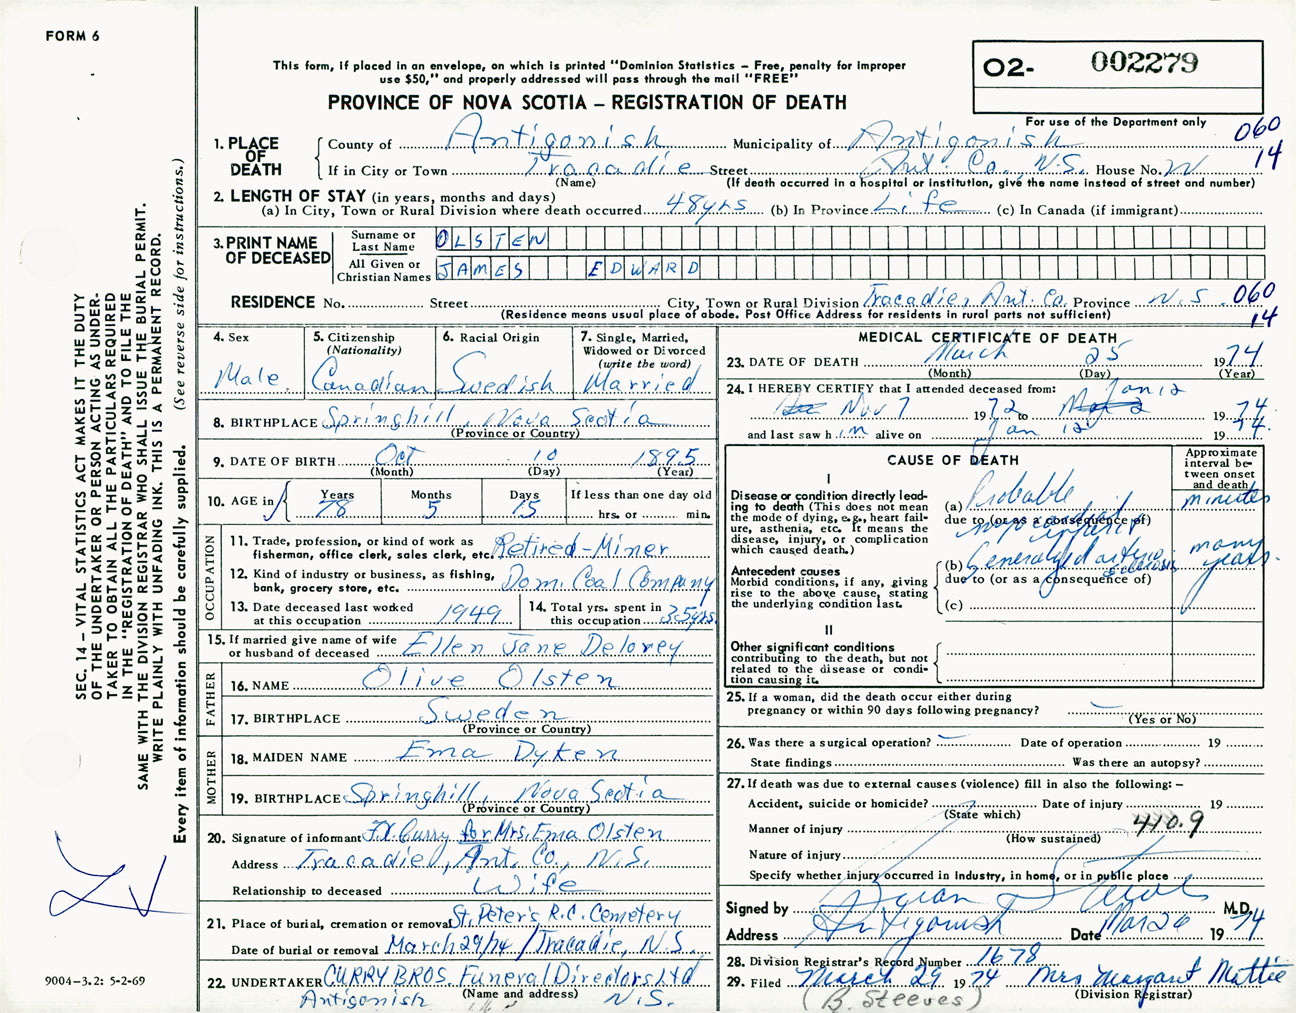 FORM 6
This form, if placed in an envelope, on which is printed "Dominion Statistics – Free, penalty for improper
use $50," and properly addressed will pass through the mail "FREE"
PROVINCE OF NOVA SCOTIA – REGISTRATION OF DEATH
O2- 002279
For use of the Department only
060
14
1. PLACE OF DEATH
County of Antigonish Municipality of Antigonish
If in City or Town Tracadie Street Ant. Co., N.S. House No.
(Name) (If death occurred in a hospital or institution, give the name instead of street and number)
2. LENGTH OF STAY (in years, months and days)
(a) In City, Town or Rural Division where death occurred 48yrs (b) In Province Life (c) In Canada (if immigrant)
3. PRINT NAME OF DECEASED
Surname or Last Name OLSTEN
All Given or Christian Names JAMES EDWARD
RESIDENCE No. Street City, Town or Rural Division Tracadie, Ant. Co. Province N.S. 060
(Residence means usual place of abode. Post Office Address for residents in rural parts not sufficient) 14
4. Sex Male
5. Citizenship (Nationality) Canadian
6. Racial Origin Swedish
7. Single, Married, Widowed or Divorced (write the word) Married
8. BIRTHPLACE Springhill, Nova Scotia
(Province or Country)
9. DATE OF BIRTH Oct 10 1895
(Month) (Day) (Year)
10. AGE in Years 78 Months 5 Days 15 If less than one day old hrs. or min.
OCCUPATION
11. Trade, profession, or kind of work as
fisherman, office clerk, sales clerk, etc. Retired-Miner
12. Kind of industry or business, as fishing,
bank, grocery store, etc. Dom. Coal Company
13. Date deceased last worked
at this occupation 1949
14. Total yrs. spent in
this occupation 35yrs.
15. If married give name of wife
or husband of deceased Ellen Jane Delorey
FATHER
16. NAME Olive Olsten
17. BIRTHPLACE Sweden
(Province or Country)
MOTHER
18. MAIDEN NAME Ema Dyken
19. BIRTHPLACE Springhill, Nova Scotia
(Province or Country)
20. Signature of informant F.X. Curry for Mrs. Ema Olsten
Address Tracadie, Ant. Co., N.S.
Relationship to deceased Wife
21. Place of burial, cremation or removal St. Peter's R.C. Cemetery
Date of burial or removal March 29/74 / Tracadie, N.S.
22. UNDERTAKER CURRY BROS. Funeral Directors Ltd
(Name and address)
Antigonish N.S.
MEDICAL CERTIFICATE OF DEATH
23. DATE OF DEATH March 25 1974
(Month) (Day) (Year)
24. I HEREBY CERTIFY that I attended deceased from: Jan 12
Nov 7 1972 to 1974
and last saw him alive on Jan 12 1974.
CAUSE OF DEATH
Approximate interval between onset and death
I
Disease or condition directly leading to death (This does not
mean the mode of dying, e.g., heart failure, asthenia, etc. It means the
disease, injury, or complication
which caused death.)
(a) Probable myocardial infarct minutes
due to (or as a consequence of)
Antecedent causes
Morbid conditions, if any, giving
rise to the above cause, stating
the underlying condition last.
(b) Generalized arteriosclerosis many years.
due to (or as a consequence of)
(c)
II
Other significant conditions
contributing to the death, but not
related to the disease or condition causing it.
25. If a woman, did the death occur either during
pregnancy or within 90 days following pregnancy? –
(Yes or No)
26. Was there a surgical operation? – Date of operation 19
State findings Was there an autopsy?
27. If death was due to external causes (violence) fill in also the following: –
Accident, suicide or homicide? Date of injury 19
(State which)
Manner of injury 410.9
(How sustained)
Nature of injury
Specify whether injury occurred in industry, in home, or in public place
Signed by M.D.
Address Antigonish Date Mar 26 1974
28. Division Registrar's Record Number 1678
29. Filed March 29 1974 Mrs Margaret Mattie
(Division Registrar)
(B. Steeves)
SEC. 14 – VITAL STATISTICS ACT MAKES IT THE DUTY
OF THE UNDERTAKER OR PERSON ACTING AS UNDER-
TAKER TO OBTAIN ALL THE PARTICULARS REQUIRED
IN THE "REGISTRATION OF DEATH" AND TO FILE THE
SAME WITH THE DIVISION REGISTRAR WHO SHALL ISSUE THE BURIAL PERMIT.
WRITE PLAINLY WITH UNFADING INK. THIS IS A PERMANENT RECORD.
Every item of information should be carefully supplied. (See reverse side for instructions.)
9004–3.2: 5-2-69